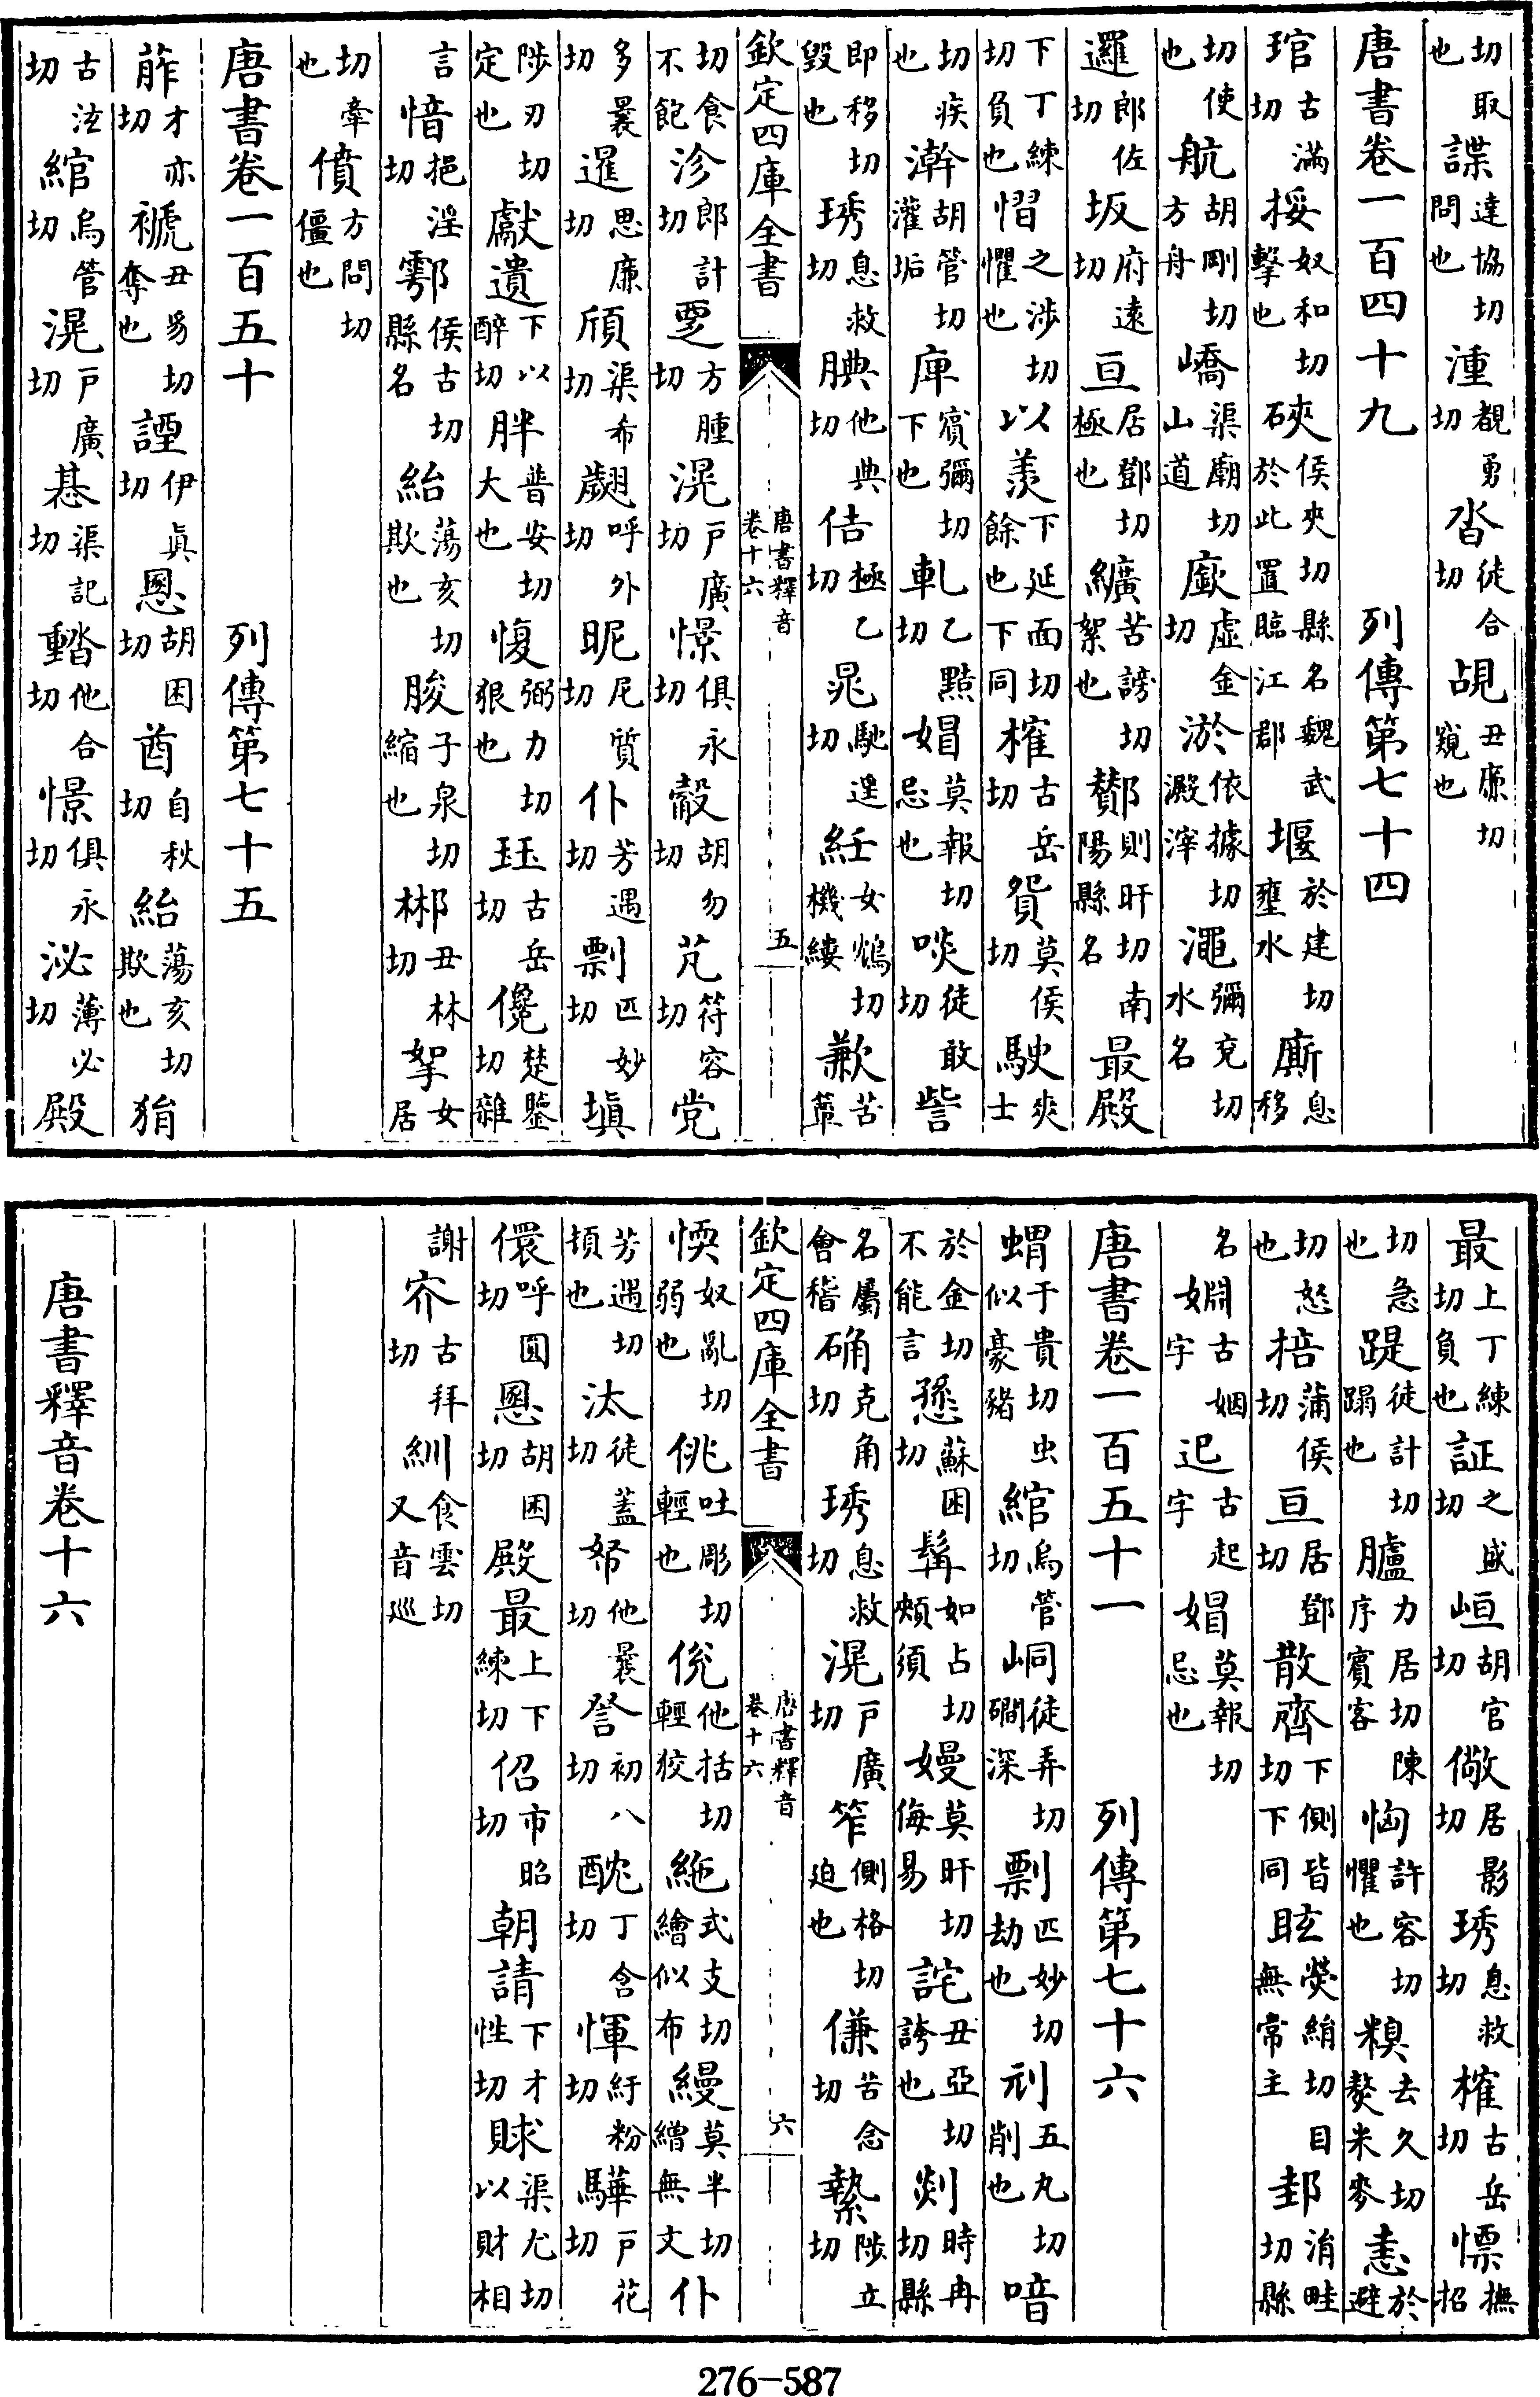 切取也諜達協切問也湩覩勇切沓徒合切覘丑廉切窺也
唐書卷一百四十九　列傳第七十四
琯古滿切挼奴和切擊也硤侯夾切縣名魏武於此置臨江郡堰於建切壅水廝息移
切使也航胡剛切方舟嶠渠廟切山道廞虛金切淤依據切澱滓澠彌兗切水名
邏郎佐切坂府遠切亘居鄧切極也纊苦謗切絮也酇則旰切南陽縣名最殿
下丁練切負也慴之涉切懼也以羨下延面切餘也下同榷古岳切貿莫侯切駛爽士
切疾也澣胡管切灌垢庳賓彌切下也軋乙黠切媢莫報切忌也啖徒敢切訾
即移切毀也琇息救切腆他典切佶極乙切晁馳遥切紝女鴆切機縷歉苦簟
欽定四庫全書　唐書釋音卷十六　五
切食不飽沴郎計切覂方腫切滉戶廣切憬俱永切觳胡勿切芃符容切党
多曩切暹思廉切頎渠布切翽呼外切昵尼質切仆芳遇切剽匹妙切塡
陟刃切定也獻遺下以醉切胖普安切大也愎弼力切狠也珏古岳切儳楚鑒切雜
言愔挹淫切鄠侯古切縣名紿蕩亥切欺也朘子泉切縮也郴丑林切挐女居
切牽也僨方問切僵也
唐書卷一百五十　列傳第七十五
莋才亦切褫丑豸切奪也諲伊眞切慁胡困切酋自秋切紿蕩亥切欺也狷
古泫切綰烏管切滉戶廣切惎渠記切蹹他合切憬俱永切泌薄必切殿
最上丁練切負也証之盛切峘胡官切儆居影切琇息救切榷古岳切慓撫招
切急也踶徒計切蹋也臚力居切陳序賓客恟許容切懼也糗去久切熬米麥恚於避
切怒也掊蒲侯切亘居鄧切散齊下側皆切下同眩熒絹切目無常主邽涓畦切縣
名婣古姻字迟古起字媢莫報切忌也
唐書卷一百五十一　列傳第七十六
蝟于貴切虫似豪豬綰烏管切峒徒弄切磵深剽匹妙切劫也刓五丸切削也喑
於金切不能言愻蘇困切髯如占切頰須嫚莫旰切侮易詫丑亞切誇也剡時冉切縣
名屬會稽确克角切琇息救切滉戶廣切笮側格切迫也傔苦念切縶陟立切
欽定四庫全書　唐書釋音卷十六　六
愞奴亂切弱也佻吐彫切輕也侻他括切輕狡絁式支切繒似布縵莫半切繒無文仆
芳遇切頓也汰徒蓋切帑他曩切詧初八切酖丁含切惲紆粉切驊戶花切
儇呼圓切慁胡困切殿最上下練切佋市昭切朝請下才性切賕渠尤切以財相
謝夰古拜切紃食雲切又音巡
唐書釋音卷十六
276-587